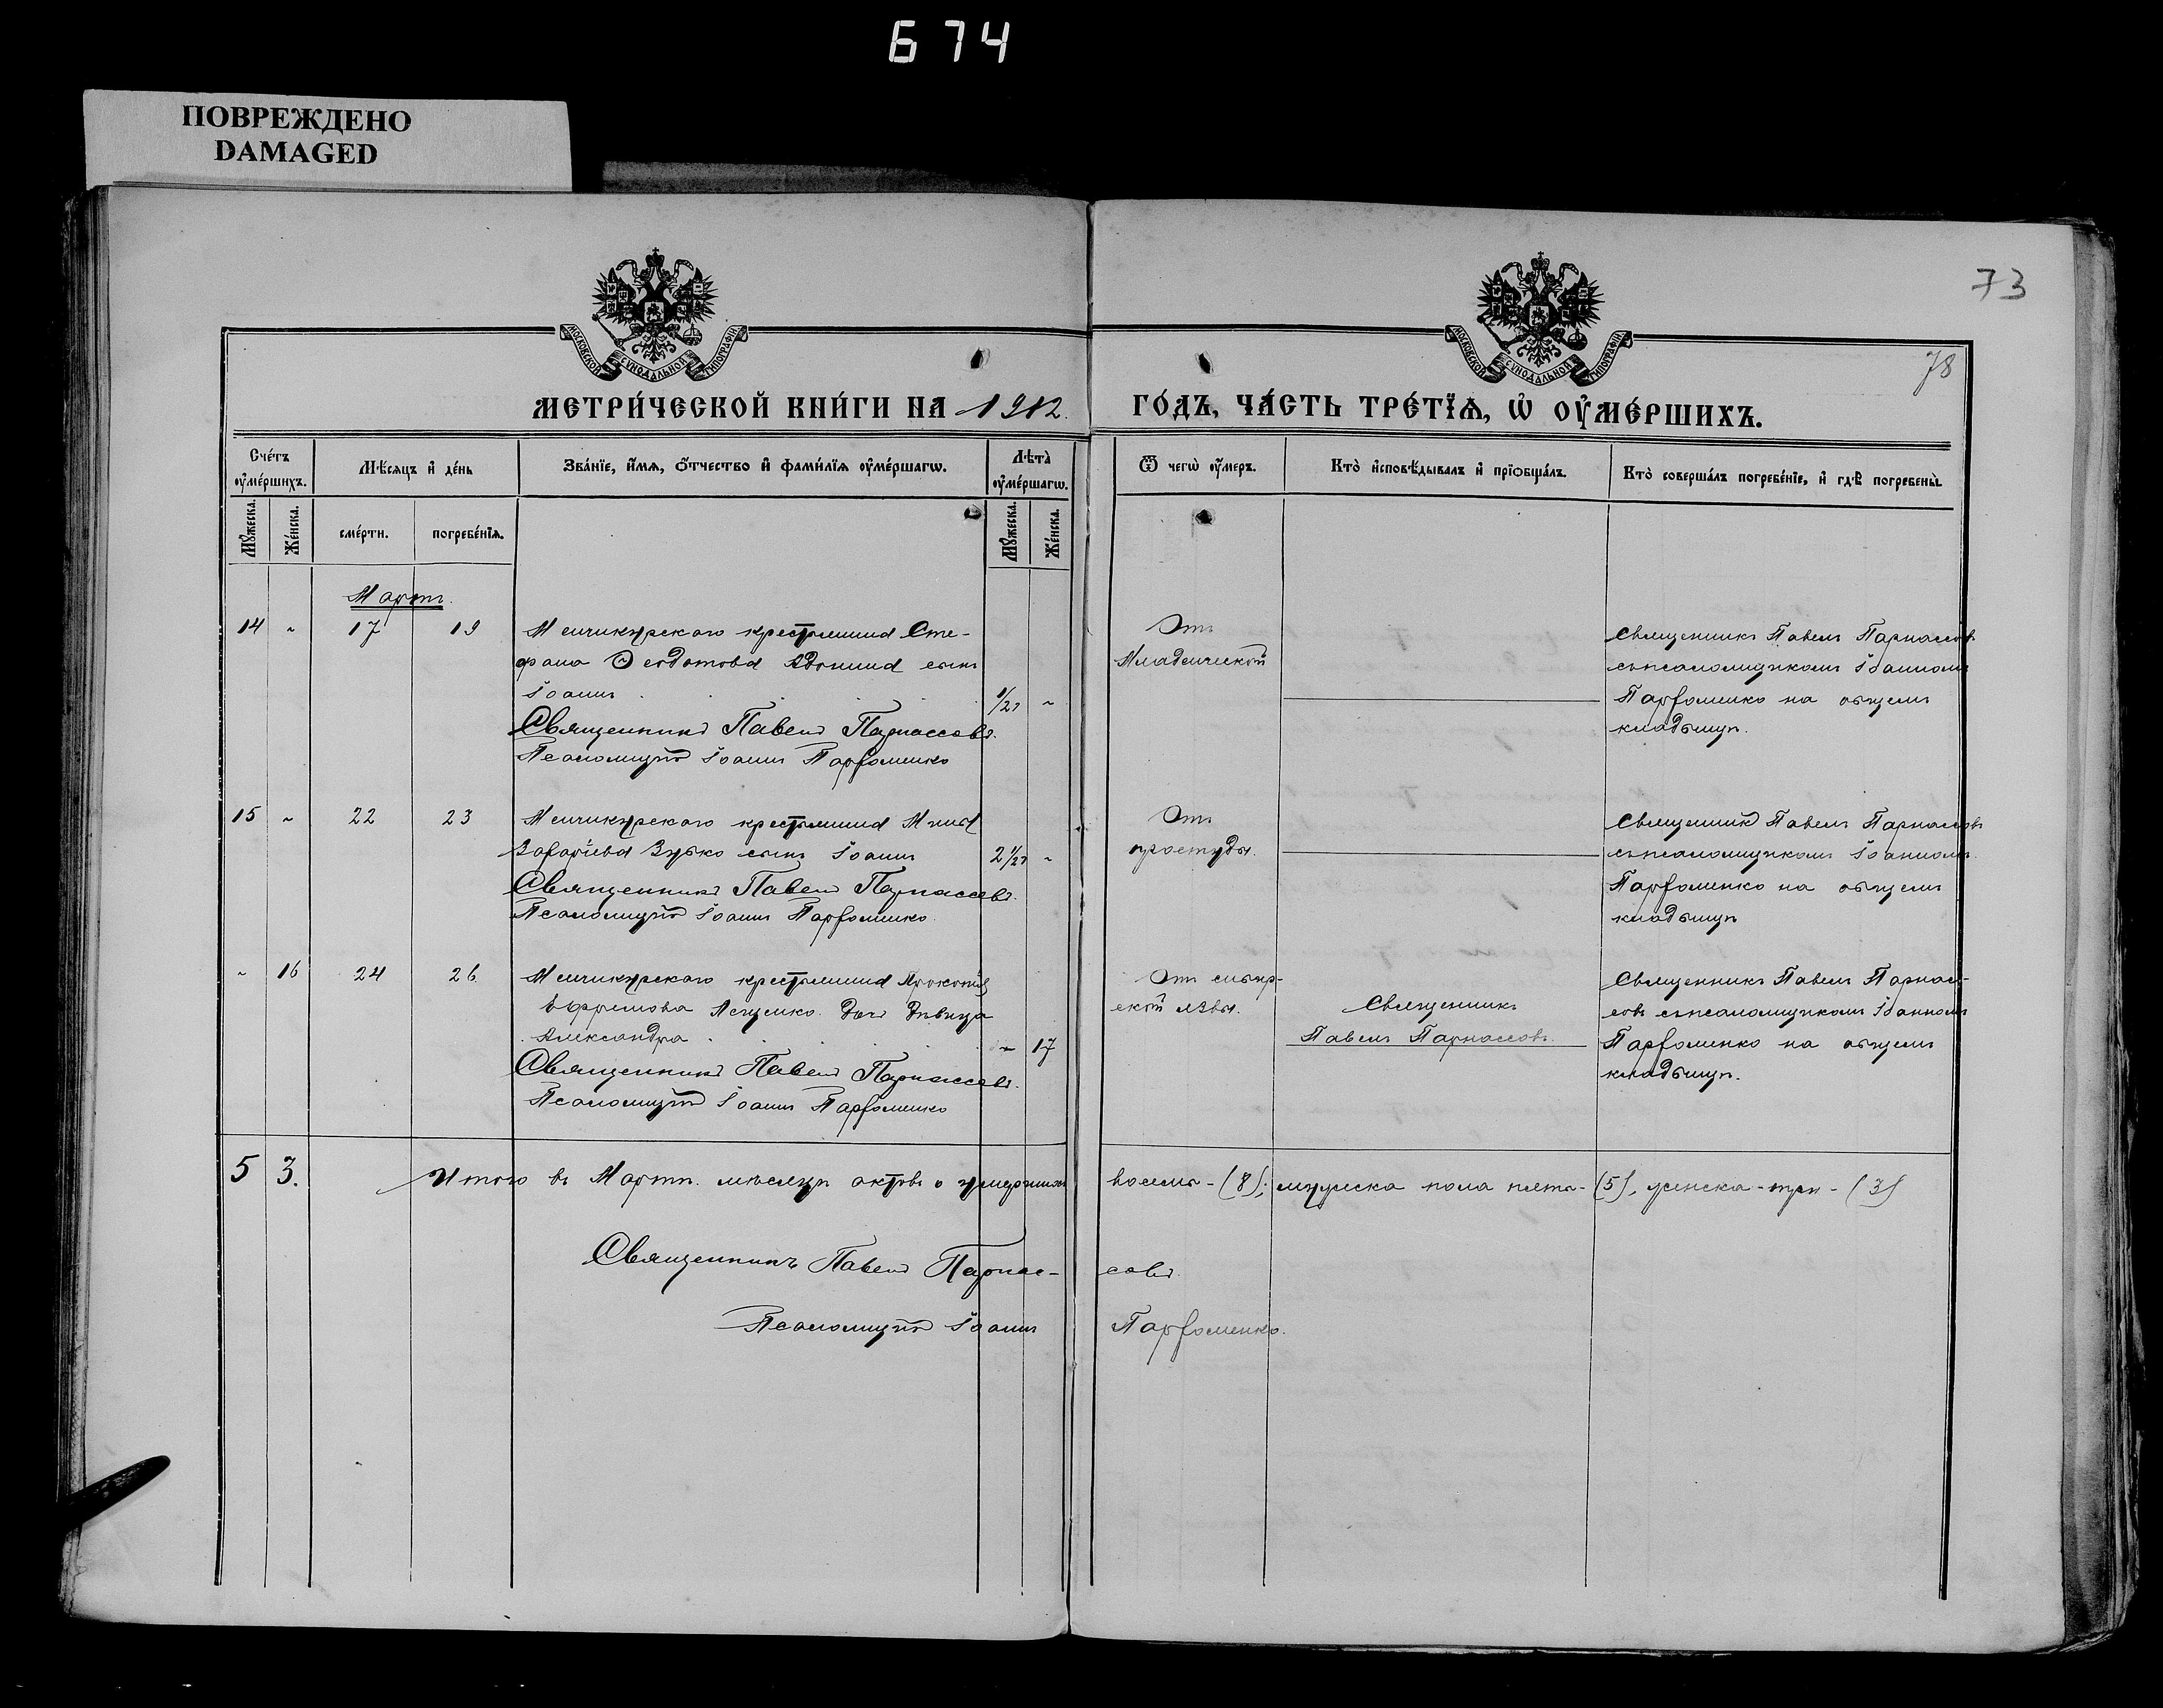 674
ПОВРЕЖДЕНО
DAMAGED
73
78
МОСКОВСКОЙ СѴНОДАЛЬНОЙ ТИПОГРАФІИ
МОСКОВСКОЙ СѴНОДАЛЬНОЙ ТИПОГРАФІИ
МЕТРИ́ЧЕСКОЙ КНИ́ГИ НА 1912.
ГО́ДЪ, ЧА́СТЬ ТРЕ́ТЇѦ, Ѡ҆ ОУ҆МЕ́РШИХЪ.
Сче́тъ оу҆ме́ршихъ.
Мѣ́сяцъ и҆ де́нь
Зва́нїе, и҆́мѧ, ѻ҆́тчество и҆ фами́лїѧ оу҆ме́ршагѡ.
Лѣта̀ оу҆ме́ршагѡ.
Ѿ чегѡ̀ оу҆́меръ.
Кто̀ и҆сповѣ́дывалъ и҆ прїѡбща́лъ.
Кто̀ соверша́лъ погребе́нїе, и҆ гдѣ̀ погребены̀.
Мꙋ́жеска.
Же́нска.
сме́рти.
погребе́нїѧ.
Мꙋ́жеска.
Же́нска.
Мартъ.
14 " 17 19
Менчикурскаго крестьянина Сте-
фана Ѳеодотова сынъ
Іоаннъ
1/21 "
Священникъ Павелъ Парнассовъ.
Псаломщикъ Іоаннъ Парфоменко
Отъ
младенческой
Священникъ Павелъ Парнассовъ
съ псаломщикомъ Іоанномъ
Парфоменко на общемъ
кладбищѣ.
15 " 22 23
Менчикурскаго крестьянина Мины
Захаріева Зубко сынъ Іоаннъ
2 1/21 "
Священникъ Павелъ Парнассовъ.
Псаломщикъ Іоаннъ Парфоменко
Отъ
простуды.
Священникъ Павелъ Парнассовъ
съ псаломщикомъ Іоанномъ
Парфоменко на общемъ
кладбищѣ
" 16 24 26
Менчикурскаго крестьянина Прокопія
Ефремова дочь дѣвица
Александра
" 17
Священникъ Павелъ Парнассовъ.
Псаломщикъ Іоаннъ Парфоменко
Отъ сибир-
ской язвы.
Священникъ
Павелъ Парнассовъ.
Священникъ Павелъ Парнас-
совъ съ псаломщикомъ Іоанномъ
Парфоменко на общемъ
кладбищѣ.
5 3. Итого въ Мартѣ мѣсяцѣ актовъ о умершихъ восемь - (8); мужеска пола пять - (5), женска - три - (3)
Священникъ Павелъ Парнас- совъ.
Псаломщикъ Іоаннъ Парфоменко.